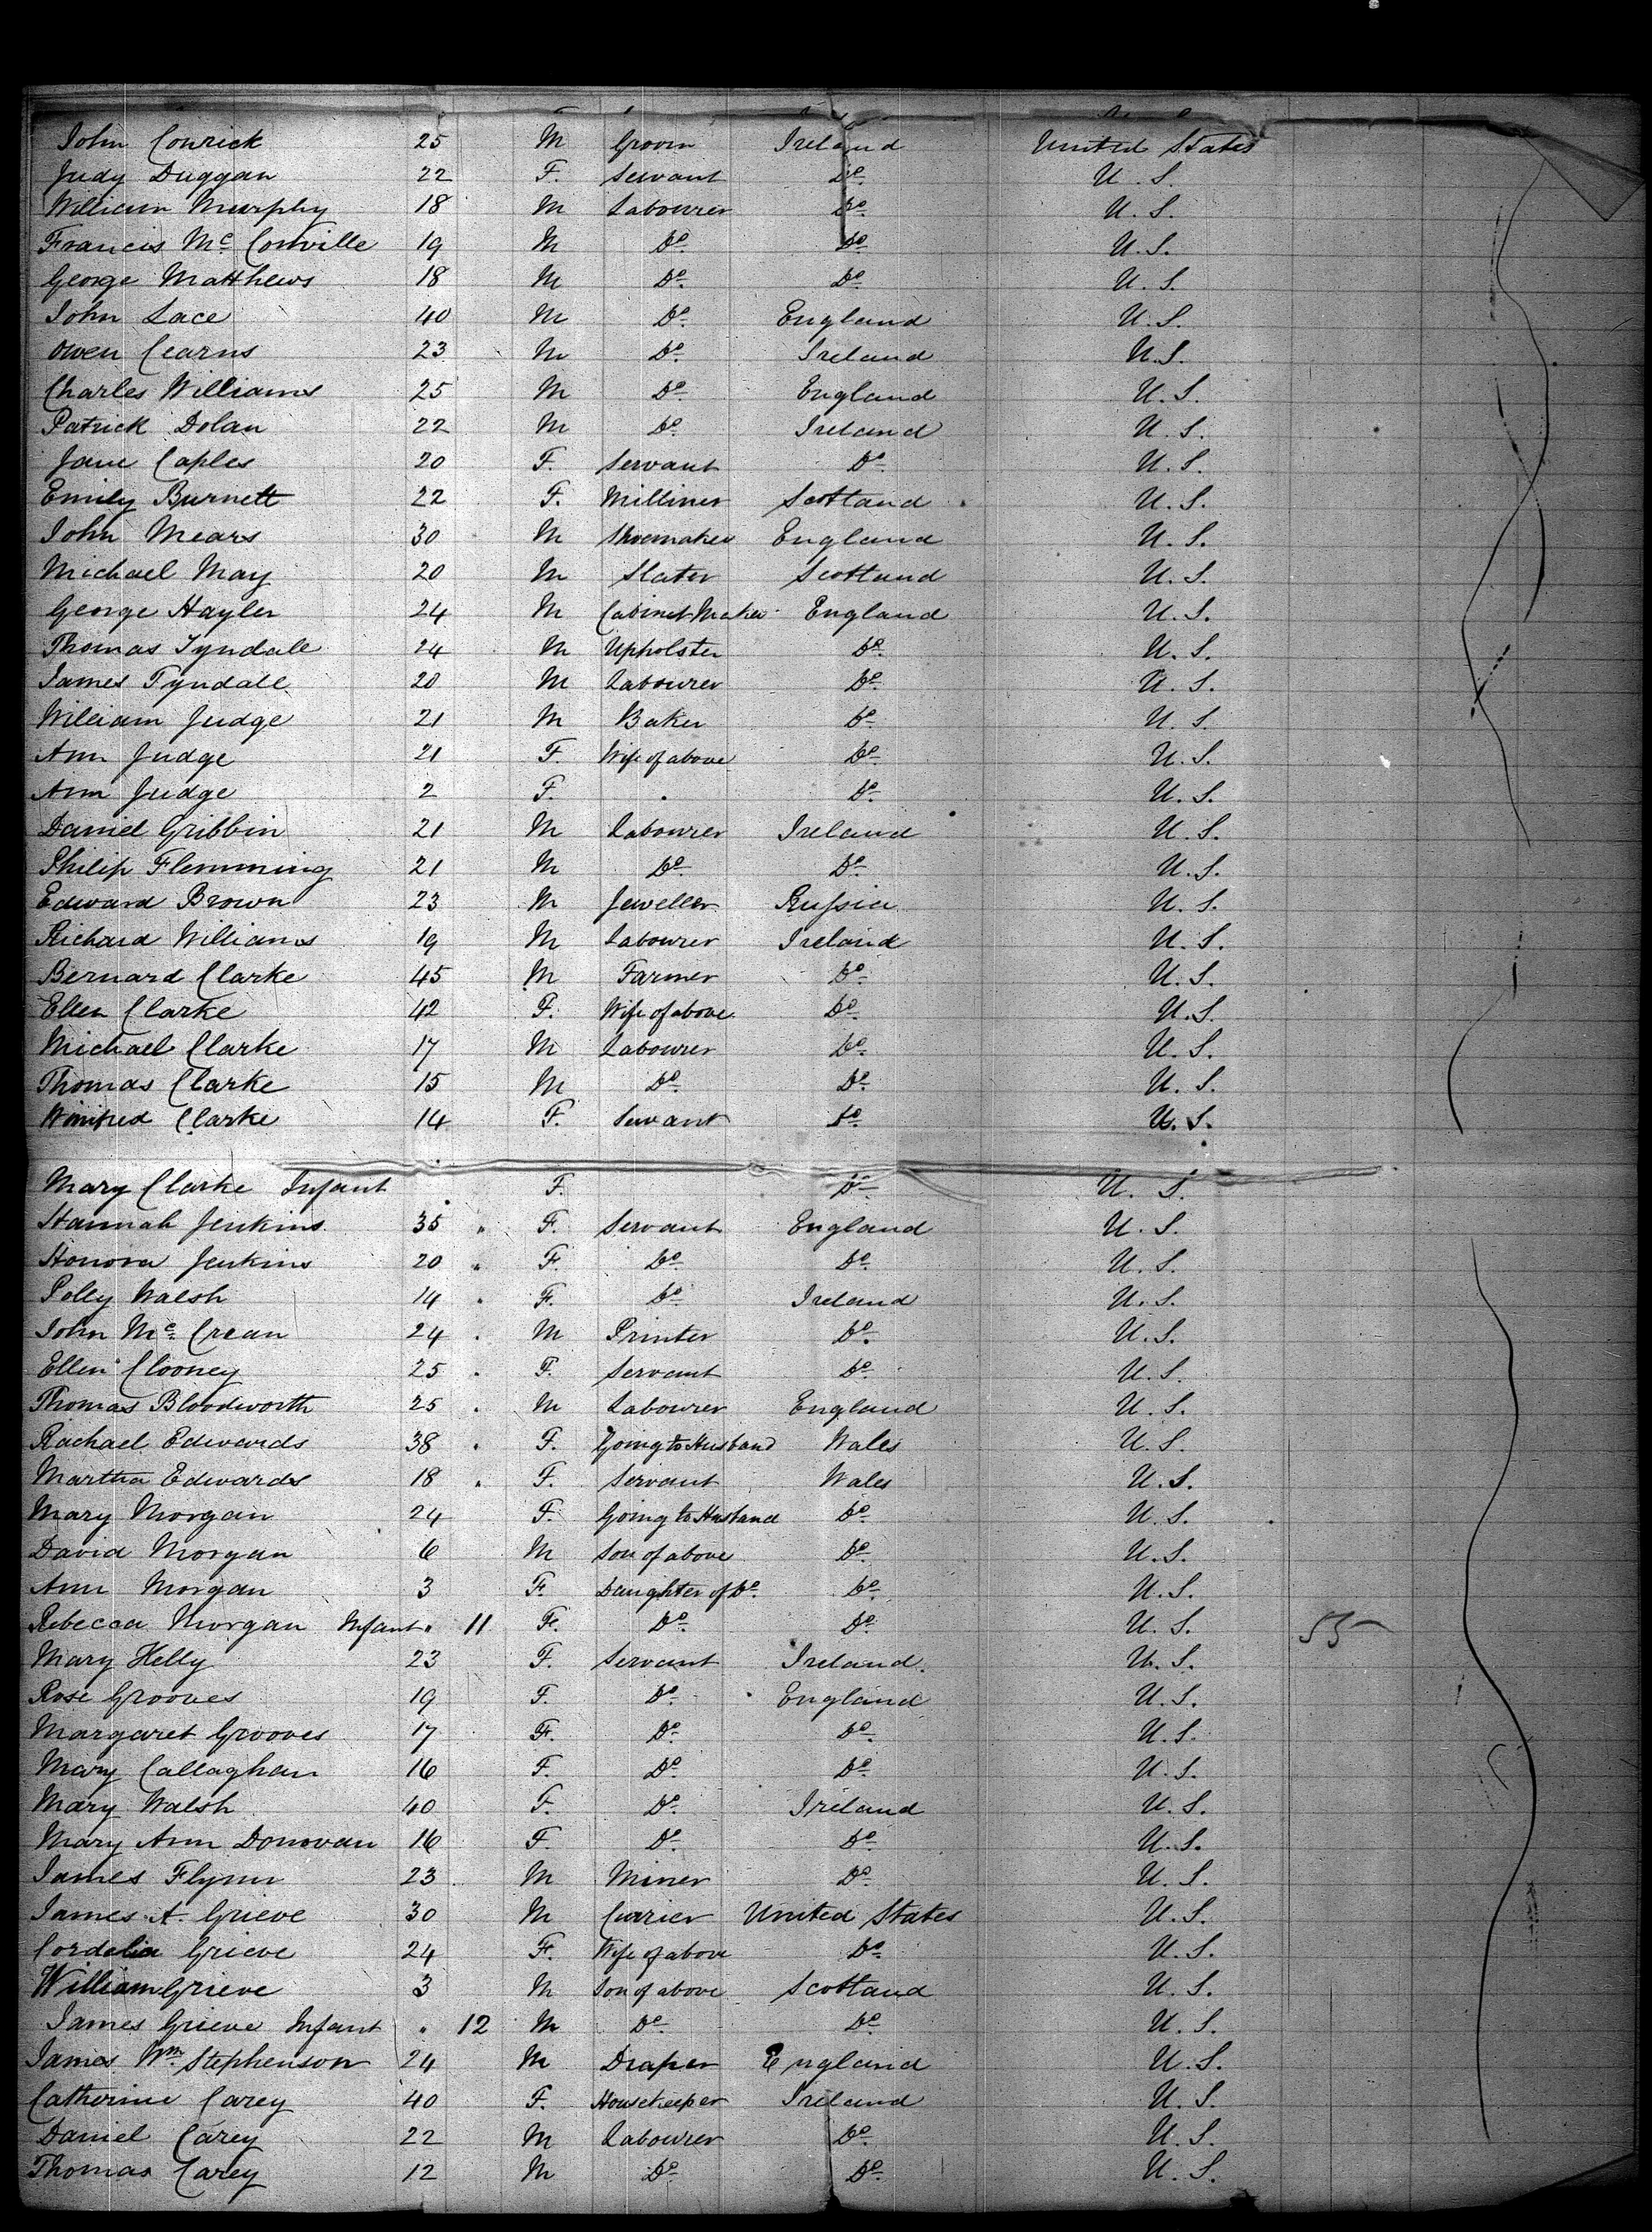 John Conrick 25 M Groom Ireland United States
Judy Duggan 22 F. Servant Do. U. S.
William Murphy 18 M Labourer Do. U. S.
Francis Mc. Conville 19 M Do. Do. U. S.
George Matthews 18 M Do. Do. U. S.
John Lace 40 M Do. England U. S.
Owen Cearns 23 M Do. Ireland U. S.
Charles Williams 25 M Do. England U. S.
Patrick Dolan 22 M Do. Ireland U. S.
Jane Caples 20 F. Servant Do. U. S.
Emily Burnett 22 F. Milliner Scotland U. S.
John Mears 30 M Shoemaker England U. S.
Michael May 20 M Slater Scotland U. S.
George Hayler 24 M Cabinet Maker England U. S.
Thomas Tyndale 24 M Upholster Do. U. S.
James Tyndall 20 M Labourer Do. U. S.
William Judge 21 M Baker Do. U. S.
Ann Judge 21 F. Wife of above Do. U. S.
Ann Judge 2 F. Do. U. S.
Daniel Gribbin 21 M Labourer Ireland U. S.
Philip Flemming 21 M Do. Do. U. S.
Edward Brown 23 M Jeweller Russia U. S.
Richard Williams 19 M Labourer Ireland U. S.
Bernard Clarke 45 M Farmer Do. U. S.
Ellen Clarke 42 F. Wife of above Do. U. S.
Michael Clarke 17 M Labourer Do. U. S.
Thomas Clarke 15 M Do. Do. U. S.
Winifred Clarke 14 F. Servant Do. U. S.
Mary Clarke Infant F. Do. U. S.
Hannah Jenkins 35 " F. Servant England U. S.
Honora Jenkins 20 " F. Do. Do. U. S.
Polly Walsh 14 " F. Do. Ireland U. S.
John Mc. Crean 24 M Printer Do. U. S.
Ellen Clooney 25 F. Servant Do. U. S.
Thomas Bloodworth 25 M Labourer England U. S.
Rachael Edwards 38 F. Going to Husband Wales U. S.
Martha Edwards 18 F. Servant Wales U. S.
Mary Morgan 24 F. Going to Husband Do. U. S.
David Morgan 6 M Son of above Do. U. S.
Ann Morgan 3 F. Daughter of Do. Do. U. S.
Rebecca Morgan Infant " 11 F. Do. Do. U. S. 55
Mary Kelly 23 F. Servant Ireland. U. S.
Rose Grooves 19 F. Do. England U. S.
Margaret Grooves 17 F. Do. Do. U. S.
Mary Callaghan 16 F. Do. Do. U. S.
Mary Walsh 40 F. Do. Ireland U. S.
Mary Ann Donovan 16 F Do. Do. U. S.
James Flynn 23 M Miner Do. U. S.
James A. Grieve 30 M Curier United States U. S.
Cordelia Grieve 24 F. Wife of above Do. U. S.
William Grieve 3 M Son of above Scotland U. S.
James Grieve Infant " 12 M Do. Do. U. S.
James Wm. Stephenson 24 M Draper England U. S.
Catherine Carey 40 F. Housekeeper Ireland U. S.
Daniel Carey 22 M Labourer Do. U. S.
Thomas Carey 12 M Do. Do. U. S.